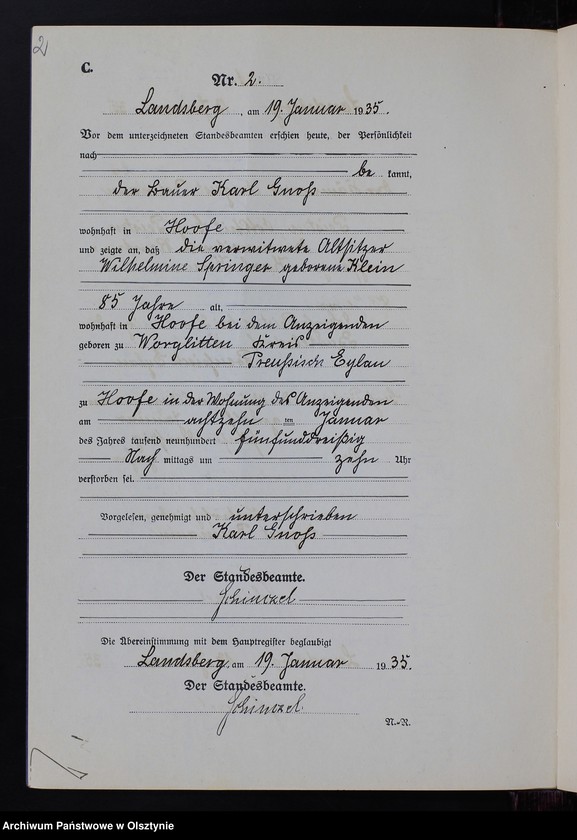 2
C.
Nr. 2.
Landsberg, am 19. Januar 1935.
Vor dem unterzeichneten Standesbeamten erschien heute, der Persönlichkeit
nach
be kannt,
der Bauer Karl Gnoß
wohnhaft in Hoofe
und zeigte an, daß die verwitwete Altsitzer
Wilhelmine Springer geborene Klein
85 Jahre alt,
wohnhaft in Hoofe bei dem Anzeigenden
geboren zu Worglitten Kreis
Preußisch Eylau
zu Hoofe in der Wohnung des Anzeigenden
am achtzehn ten Januar
des Jahres tausend neunhundert fünfunddreißig
Nach mittags um zehn Uhr
verstorben sei.
Vorgelesen, genehmigt und unterschrieben
Karl Gnoß
Der Standesbeamte.
Schinzel
Die Übereinstimmung mit dem Hauptregister beglaubigt
Landsberg, am 19. Januar 1935.
Der Standesbeamte.
Schinzel
N.-R.
Archiwum Państwowe w Olsztynie